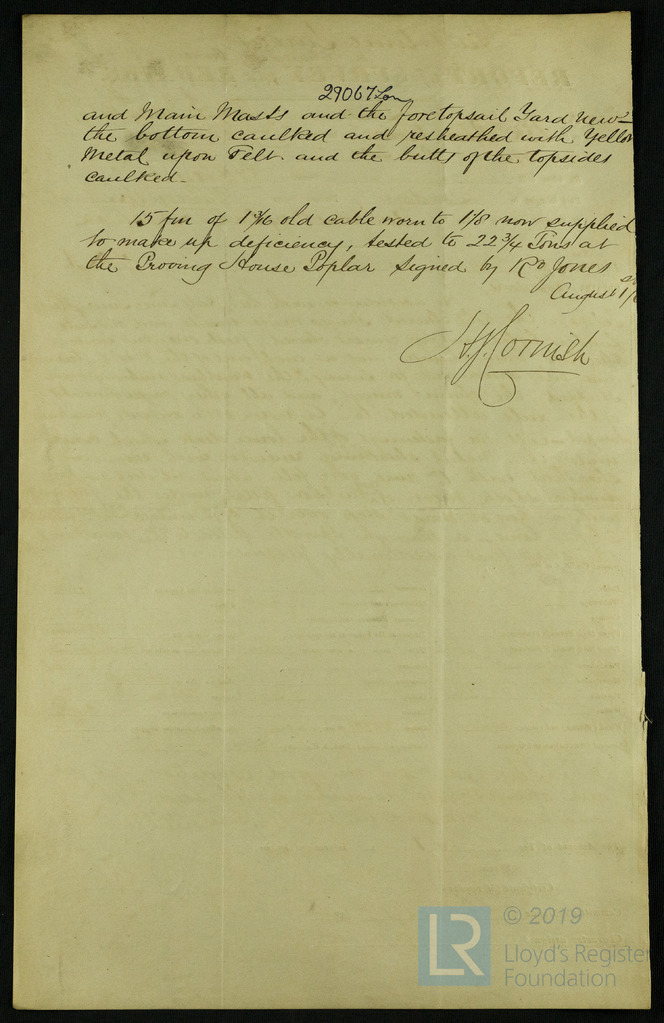 29067 Lon
and Main Masts and the foretopsail Yard new
the bottom caulked and resheathed with Yellow
Metal upon Felt and the butts of the topsides
caulked.
15 fm of 1 3/16 old cable worn to 1 1/8 now supplied
to make up deficiency, tested to 22 3/4 Tons at
the Proving House Poplar signed by Rd Jones
August
H.J. Cornish
LR © 2019
Lloyd's Register
Foundation